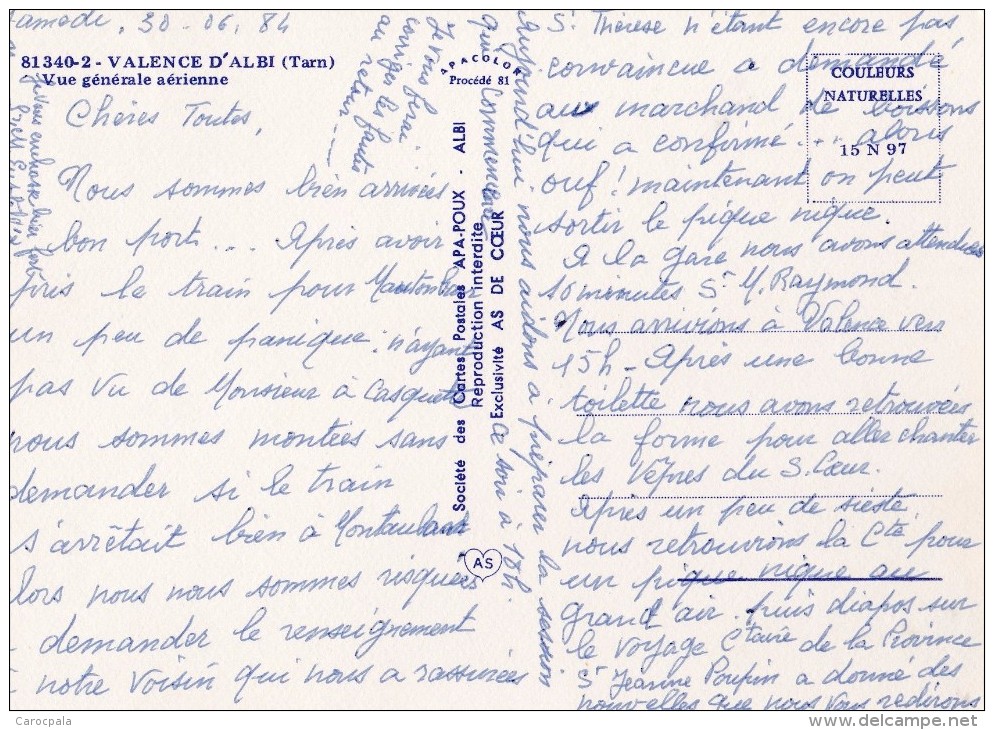 Samedi, 30-06.84
81340-2 - VALENCE D'ALBI (Tarn)
Vue générale aérienne
Chères Toutes,
Nous sommes bien arrivées
bon port... Après avoir
pris le train pour Montauban
un peu de panique: n'ayant
pas vu de Monsieur à Casquette
nous sommes montées sans
demander si le train
s'arrêtait bien à Montauban
lors nous nous sommes risquées
demander le renseignement
notre voisin qui nous a rassurées
St Thérèse n'étant encore pas
convaincue a demandé
au marchand de boissons
qui a confirmé... alors
ouf! maintenant on peut
sortir le pique nique.
A la gare nous avons attendues
10 minutes Sr M. Raymond.
Nous arrivions à Valence vers
15h - Après une bonne
toilette nous avons retrouvées
la forme pour aller chanter
les Vêpres du S. Cœur.
Après un peu de sieste
nous retrouvions la Cté pour
un pique nique au
grand air. puis diapos sur
le voyage Ctaire de la Province
Sr Jeanine Poupin a donné des
nouvelles que nous vous redirons
Aujourd'hui nous aidons à préparer la session
qui commence ce soir à 18h.
Je vous ferai
corriger les fautes
au retour ----
Je vous embrasse bien fort
APACOLOR
Procédé 81
Société des Cartes Postales APA-POUX - ALBI
Reproduction interdite
Exclusivité AS DE CŒUR
AS
COULEURS
NATURELLES
15 N 97
Carocpala
www.delcampe.net